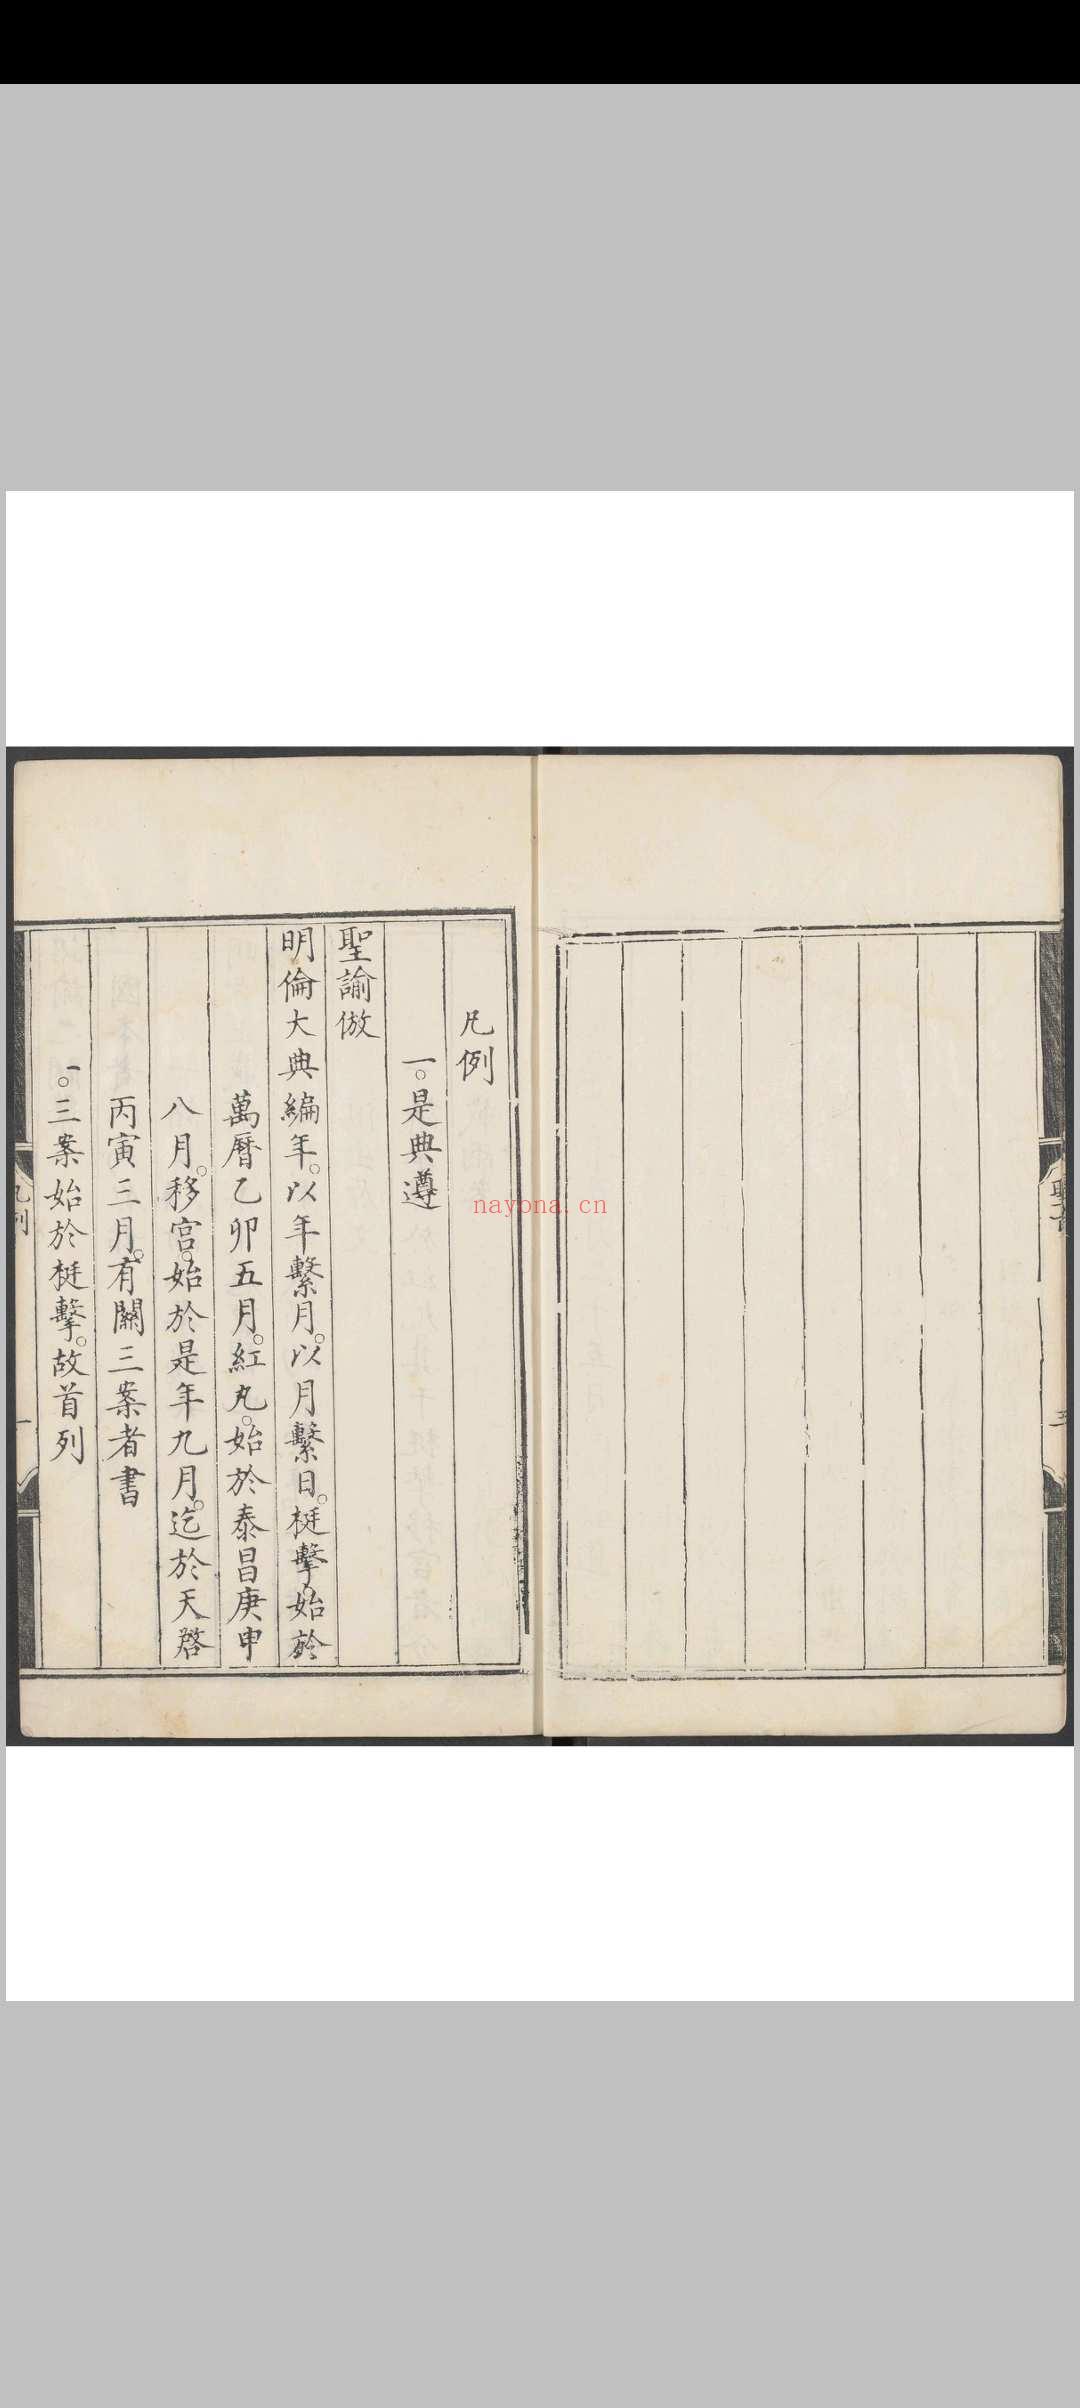 凡例
一。是典遵
聖諭倣
明倫大典編年。以年繫月。以月繫日。梃擊。始於
萬曆乙卯五月。紅丸。始於泰昌庚申
八月。移宮。始於是年九月。迄於天啓
丙寅三月。有關三案者書
一。三案始於梃擊。故首列
凡例
一
nayona.cn